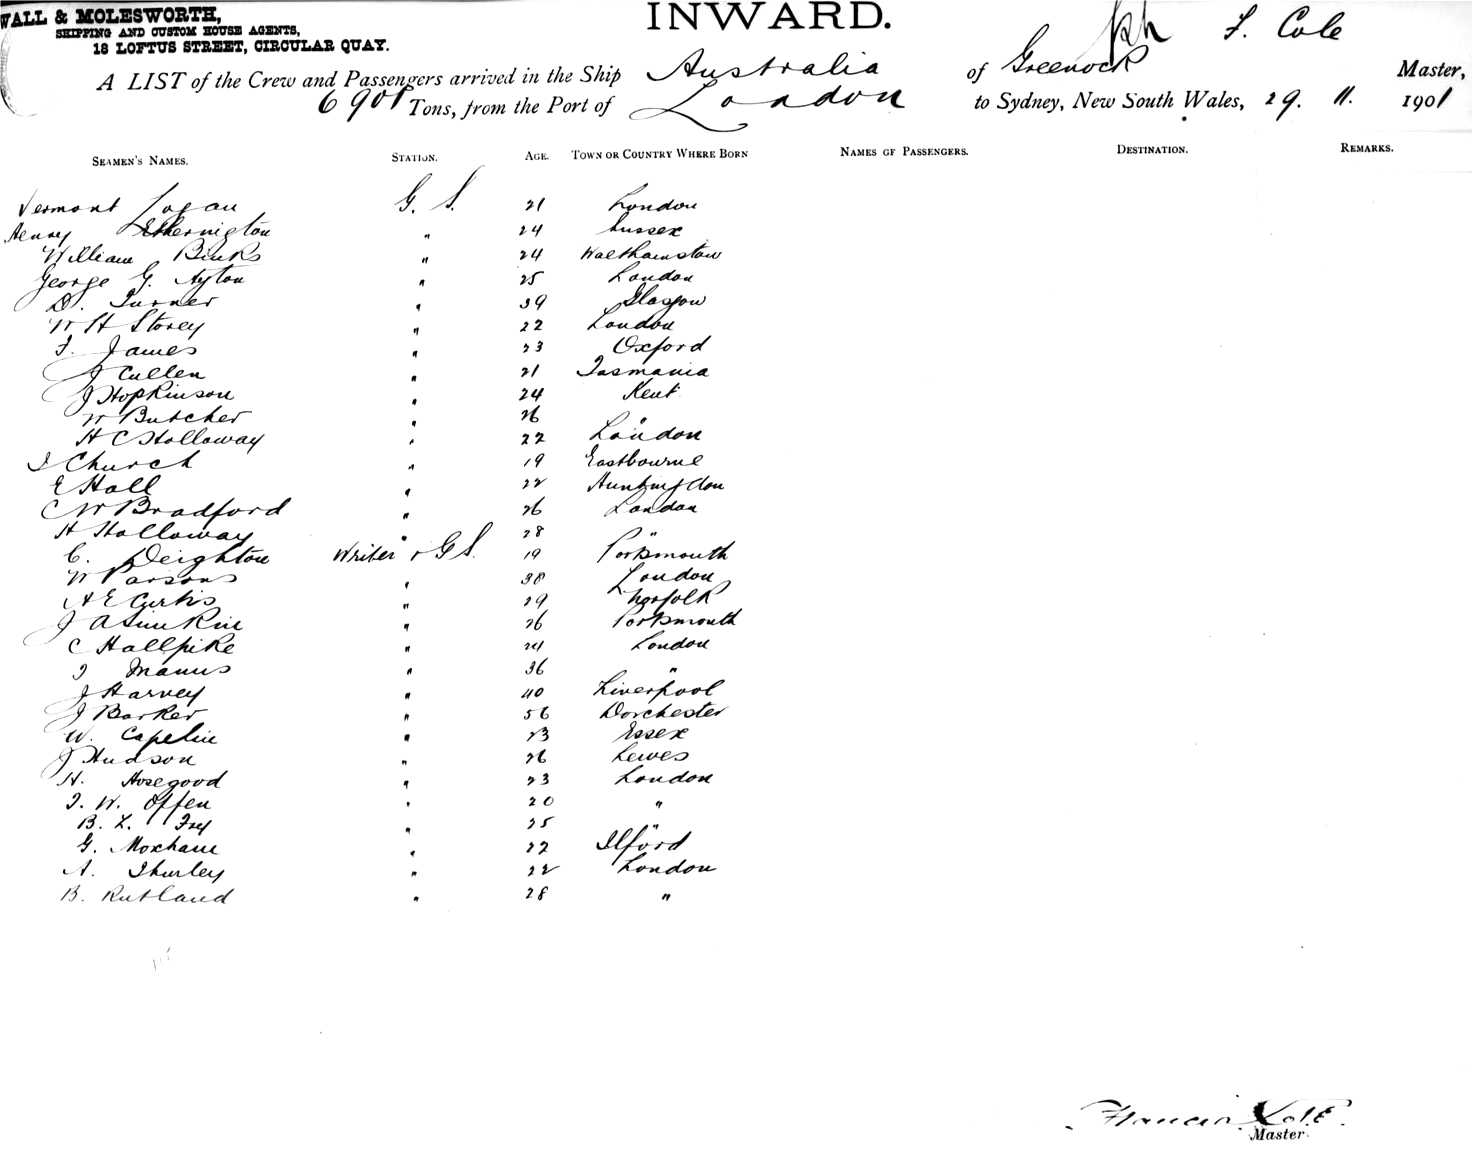 WALL & MOLESWORTH,
SHIPPING AND CUSTOM HOUSE AGENTS,
18 LOFTUS STREET, CIRCULAR QUAY.
INWARD.
F. Cole
A LIST of the Crew and Passengers arrived in the Ship Australia of Greenock Master,
6901 Tons, from the Port of London to Sydney, New South Wales, 29. 11. 1901
SEAMEN'S NAMES. STATION. AGE. TOWN OR COUNTRY WHERE BORN NAMES OF PASSENGERS. DESTINATION. REMARKS.
Vermont Logan G. S. 21 London
Henry Etherington " 24 Sussex
William Binks " 24 Walthamstow
George G. Ayton " 25 London
D. Turner " 39 Glasgow
W H Storey " 22 London
F. James " 23 Oxford
J Cullen " 21 Tasmania
J Hopkinson " 24 Kent
W Butcher " 26 "
H C Holloway " 22 London
J Church " 19 Eastbourne
E Hall " 22 Huntingdon
C W Bradford " 26 London
H Holloway " 28 "
C. Deighton Writer & G S. 19 Portsmouth
W Parsons " 38 London
A E Curtis " 29 Norfolk
J A Simkin " 26 Portsmouth
C Hallpike " 24 London
J Manus " 36 "
J Harvey " 40 Liverpool
J Barker " 56 Dorchester
W. Capelin " 23 Essex
J Hudson " 26 Lewes
H. Hosegood " 23 London
J. W. Offen " 20 "
B. L. Fry " 25 "
G. Moxham " 22 Ilford
A. Thurley " 22 London
B. Rutland " 28 "
Francis Cole
Master